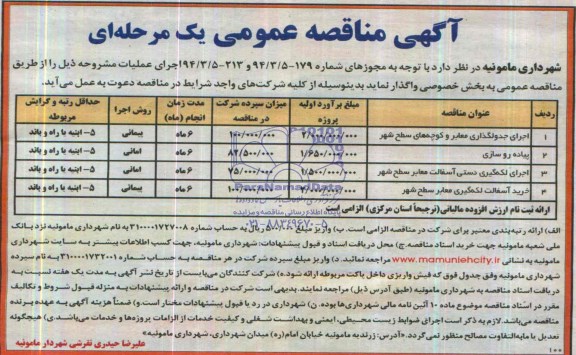 آگهی مناقصه عمومی یک مرحله‌ای
شهرداری مامونیه در نظر دارد با توجه به مجوزهای شماره ۱۷۹-۹۴/۳/۵ و ۲۱۳-۹۴/۳/۵ اجرای عملیات مشروحه ذیل را از طریق
مناقصه عمومی به بخش خصوصی واگذار نماید بدینوسیله از کلیه شرکت‌های واجد شرایط در مناقصه دعوت به عمل می‌آید.
ردیف عنوان مناقصه مبلغ برآورد اولیه پروژه میزان سپرده شرکت در مناقصه مدت زمان انجام (ماه) روش اجرا حداقل رتبه و گرایش مربوطه
۱ اجرای جدولگذاری معابر و کوچه‌های سطح شهر ۲/۰۰۰/۰۰۰/۰۰۰ ۱۰۰/۰۰۰/۰۰۰ ۶ ماه پیمانی ۵- ابنیه یا راه و باند
۲ پیاده رو سازی ۱/۶۵۰/۰۰۰/۰۰۰ ۸۲/۵۰۰/۰۰۰ ۶ ماه امانی ۵- ابنیه یا راه و باند
۳ اجرای لکه‌گیری دستی آسفالت معابر سطح شهر ۱/۵۰۰/۰۰۰/۰۰۰ ۷۵/۰۰۰/۰۰۰ ۶ ماه امانی ۵- ابنیه یا راه و باند
۴ خرید آسفالت لکه‌گیری معابر سطح شهر ۶ ماه پیمانی ۵- ابنیه یا راه و باند
ParsNamadData
پایگاه اطلاع رسانی مناقصه و مزایده
۰۲۱-۸۸۳۴۹۶۷۰
ارائه ثبت نام ارزش افزوده مالیاتی (ترجیحاً استان مرکزی) الزامی است
الف) ارائه رتبه‌بندی معتبر برای شرکت در مناقصه الزامی است. ب) واریز مبلغ به حساب شماره ۳۱۰۰۰۰۱۷۲۲۰۰۸ به نام شهرداری مامونیه نزد بانک
ملی شعبه مامونیه جهت خرید اسناد مناقصه. ج) محل دریافت اسناد و قبول پیشنهادات: شهرداری مامونیه، جهت کسب اطلاعات بیشتر به سایت شهرداری
مامونیه به نشانی www.mamuniehcity.ir مراجعه نمائید. د) واریز مبلغ سپرده شرکت در هر مناقصه به حساب ۳۱۰۰۰۰۱۷۳۲۰۰۱ به نام شهرداری
مامونیه وفق جدول فوق که فیش واریزی داخل پاکت مربوطه ارائه شود. ه) شرکت کنندگان می‌بایست از تاریخ نشر آگهی به مدت یک هفته نسبت به
دریافت اسناد مناقصه به شهرداری مامونیه (طبق آدرس ذیل) مراجعه نمایند. بدیهی است شرکت در مناقصه و ارائه پیشنهادات به منزله قبول شروط و تکالیف
مقرر در اسناد مناقصه موضوع ماده ۱۰ آئین نامه مالی شهرداری‌ها بوده. ن) شهرداری در رد یا قبول پیشنهادات مختار است. و) ضمناً هزینه آگهی به عهده برنده
مناقصه می‌باشد. لازم به ذکر است اجرای ضوابط زیست محیطی، ایمنی و بهداشت شغلی و کیفیت خدمات از الزامات پروژه‌ها و خدمات می‌باشد. ی) هیچگونه
تعدیل یا مابه‌التفاوت مصالح منظور نمی‌گردد. «آدرس: زرندیه مامونیه خیابان امام (ره) میدان شهرداری، شهرداری مامونیه»
علیرضا حیدری تفرشی شهردار مامونیه